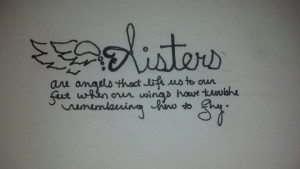 Sisters
are angels that lift us to our
feet when our wings have trouble
remembering how to fly.